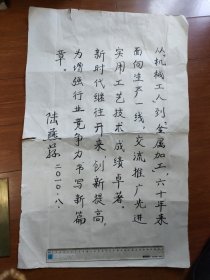 从机械工人到金属加工，六十年来
面向生产一线，交流推广先进
实用工艺技术成绩卓著。
新时代继往开来，创新提高，
为增强行业竞争力书写新篇
章。
陆燕荪 二〇一〇.八.